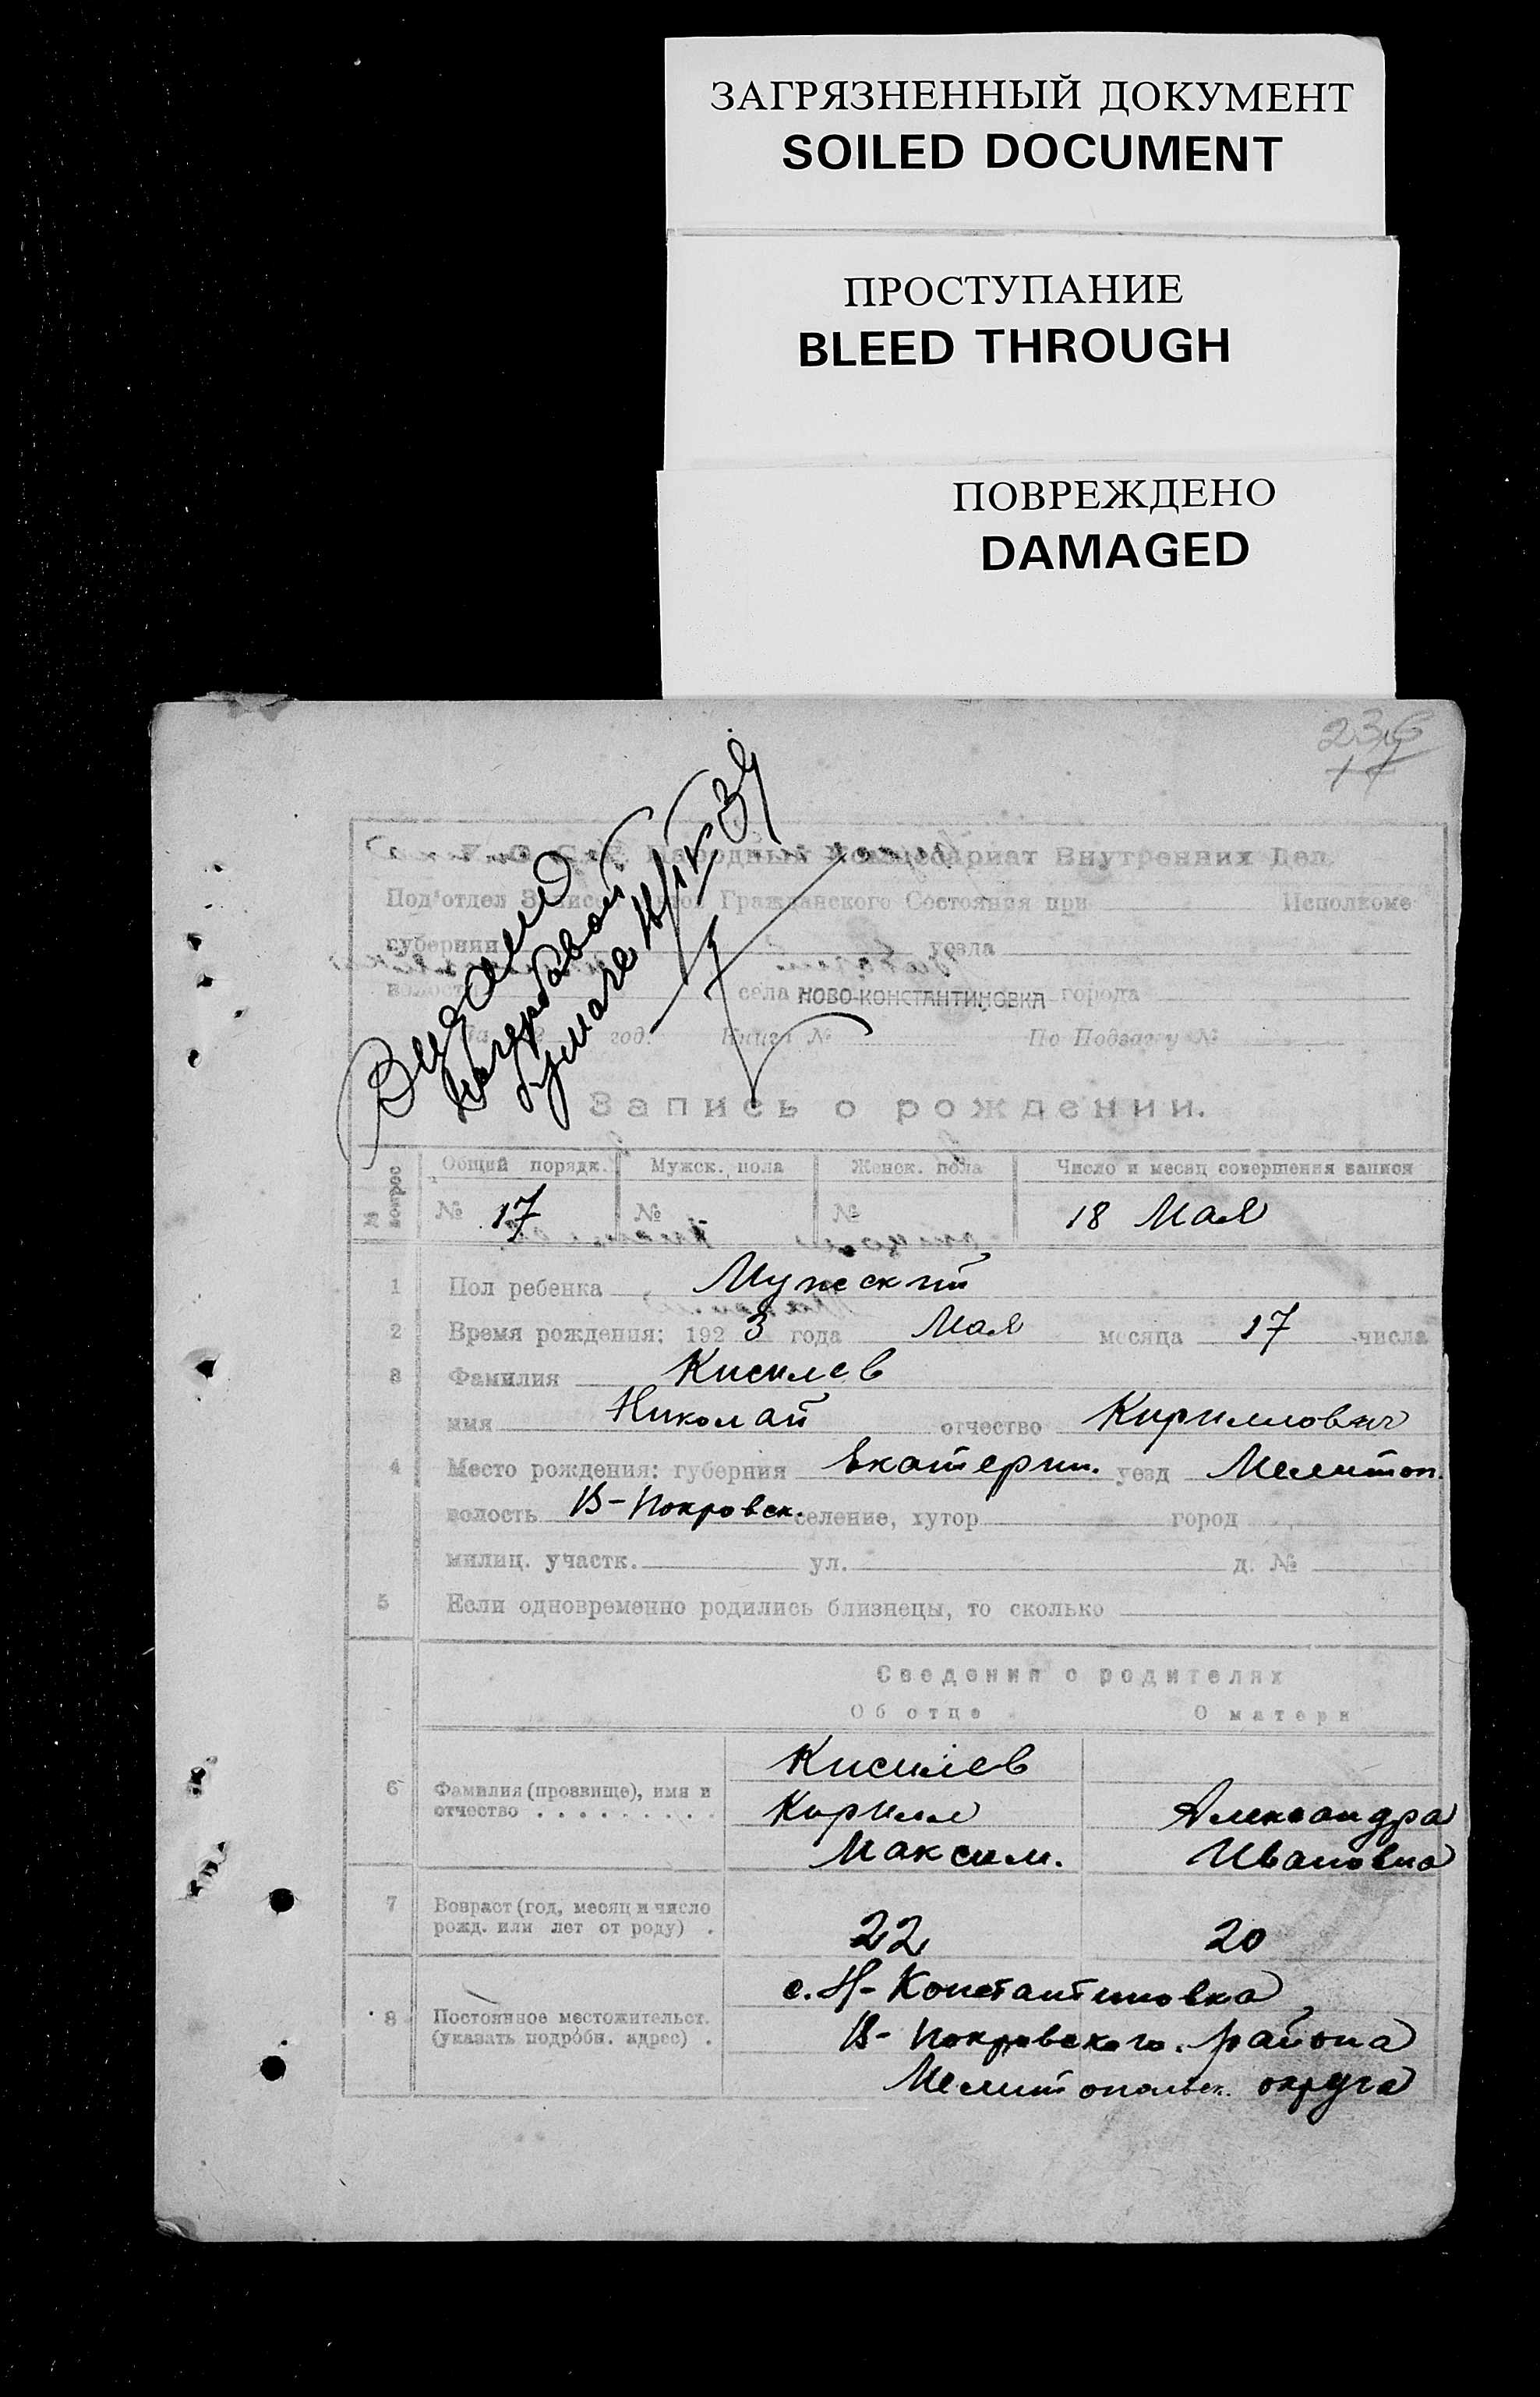 ЗАГРЯЗНЕННЫЙ ДОКУМЕНТ
SOILED DOCUMENT
ПРОСТУПАНИЕ
BLEED THROUGH
ПОВРЕЖДЕНО
DAMAGED
Народный Комиссариат Внутренних Дел.
Под'отдел Записей Гражданского Состояния при Исполкоме
губернии уезда
волости села НОВО-КОНСТАНТИНОВКА города
год. Книга № По Подзагсу №
Запись о рождении.
№ вопрос Общий порядк. Мужск. пола Женск. пола Число и месяц совершения записи
№ 17 № № 18 Мая
1 Пол ребенка Мужский
2 Время рождения: 1923 года Мая месяца 17 числа
3 Фамилия Кисилев
имя Николай отчество Кириллович
4 Место рождения: губерния Екатерин. уезд Мелитоп.
волость В-Покровск. селение, хутор город
милиц. участк. ул. д. №
5 Если одновременно родились близнецы, то сколько
Сведения о родителях
Об отце О матери
Кисилев
6 Фамилия (прозвище), имя и отчество Кирилл Александра
Максим. Ивановна
7 Возраст (год, месяц и число
рожд. или лет от роду) . 22 20
с. Н-Константиновка
8 Постоянное местожительст.
(указать подробн. адрес) . В-Покровского района
Мелитопольск. округа